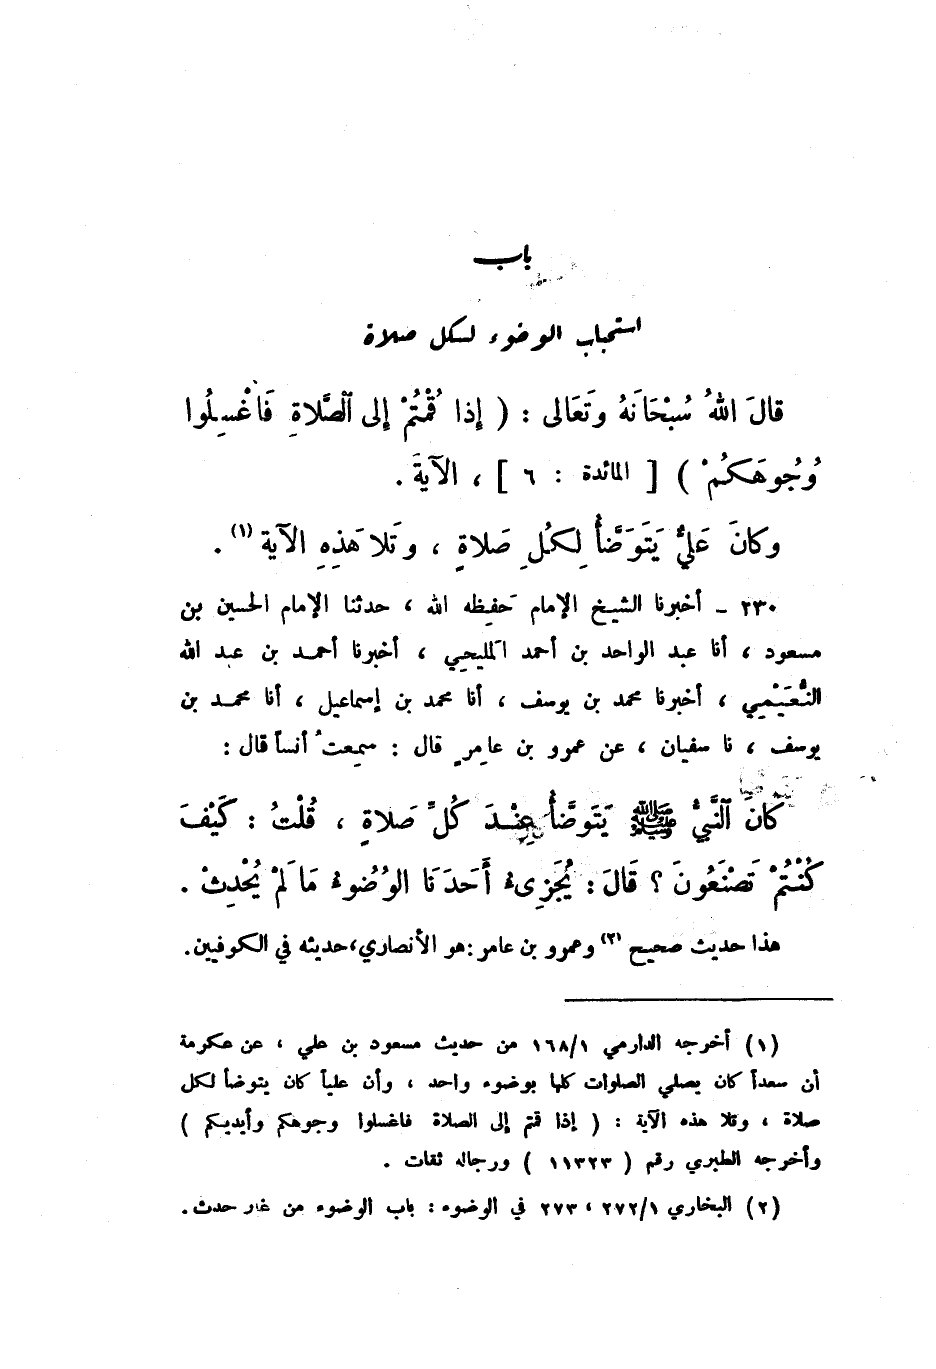 باب
استحباب الوضوء لكل صلاة
قالَ اللهُ سُبْحَانَهُ وتَعَالى : ( إذا قُمْتُمْ إلى الصَّلاةِ فَاغْسِلُوا
وُجُوهَكُمْ ) [ المائدة : ٦ ] ، الآيةَ .
وكانَ عَليٌّ يَتَوَضَّأُ لِكُلِ صَلاةٍ ، وتَلا هَذِهِ الآيةَ (١) .
٢٣٠ ــ أخبرنا الشيخ الإمام حَفِيظه الله ، حدثنا الإمام الحسين بن
مسعود ، أنا عبد الواحد بن أحمد المَليحي ، أخبرنا أحمد بن عبد الله
النُّعَيْمي ، أخبرنا محمد بن يوسف ، أنا محمد بن إسماعيل ، أنا محمد بن
يوسف ، نا سفيان ، عن عمرو بن عامِرٍ قال : سمِعتُ أنساً قال :
كانَ النَّبيُّ ﷺ يَتَوَضَّأُ عِنْدَ كُلِّ صَلاةٍ ، قُلْتُ : كَيْفَ
كُنْتُمْ تَصْنَعُونَ ؟ قَالَ : يُجْزِىءُ أَحَدَنَا الوُضُوءُ مَا لَمْ يُحْدِثْ .
هذا حديث صحيح (٢) وعمرو بن عامر : هو الأنصاري ، حديثه في الكوفيين .
(١) أخرجه الدارمي ١٦٨/١ من حديث مسعود بن علي ، عن عكرمة
أن سعداً كان يصلي الصلوات كلها بوضوء واحد ، وأن علياً كان يتوضأ لكل
صلاة ، وتلا هذه الآية : ( إذا قمتم إلى الصلاة فاغسلوا وجوهكم وأيديكم )
وأخرجه الطبري رقم ( ١١٣٢٣ ) ورجاله ثقات .
(٢) البخاري ٢٧٢/١ ، ٢٧٣ في الوضوء : باب الوضوء من غير حدث .